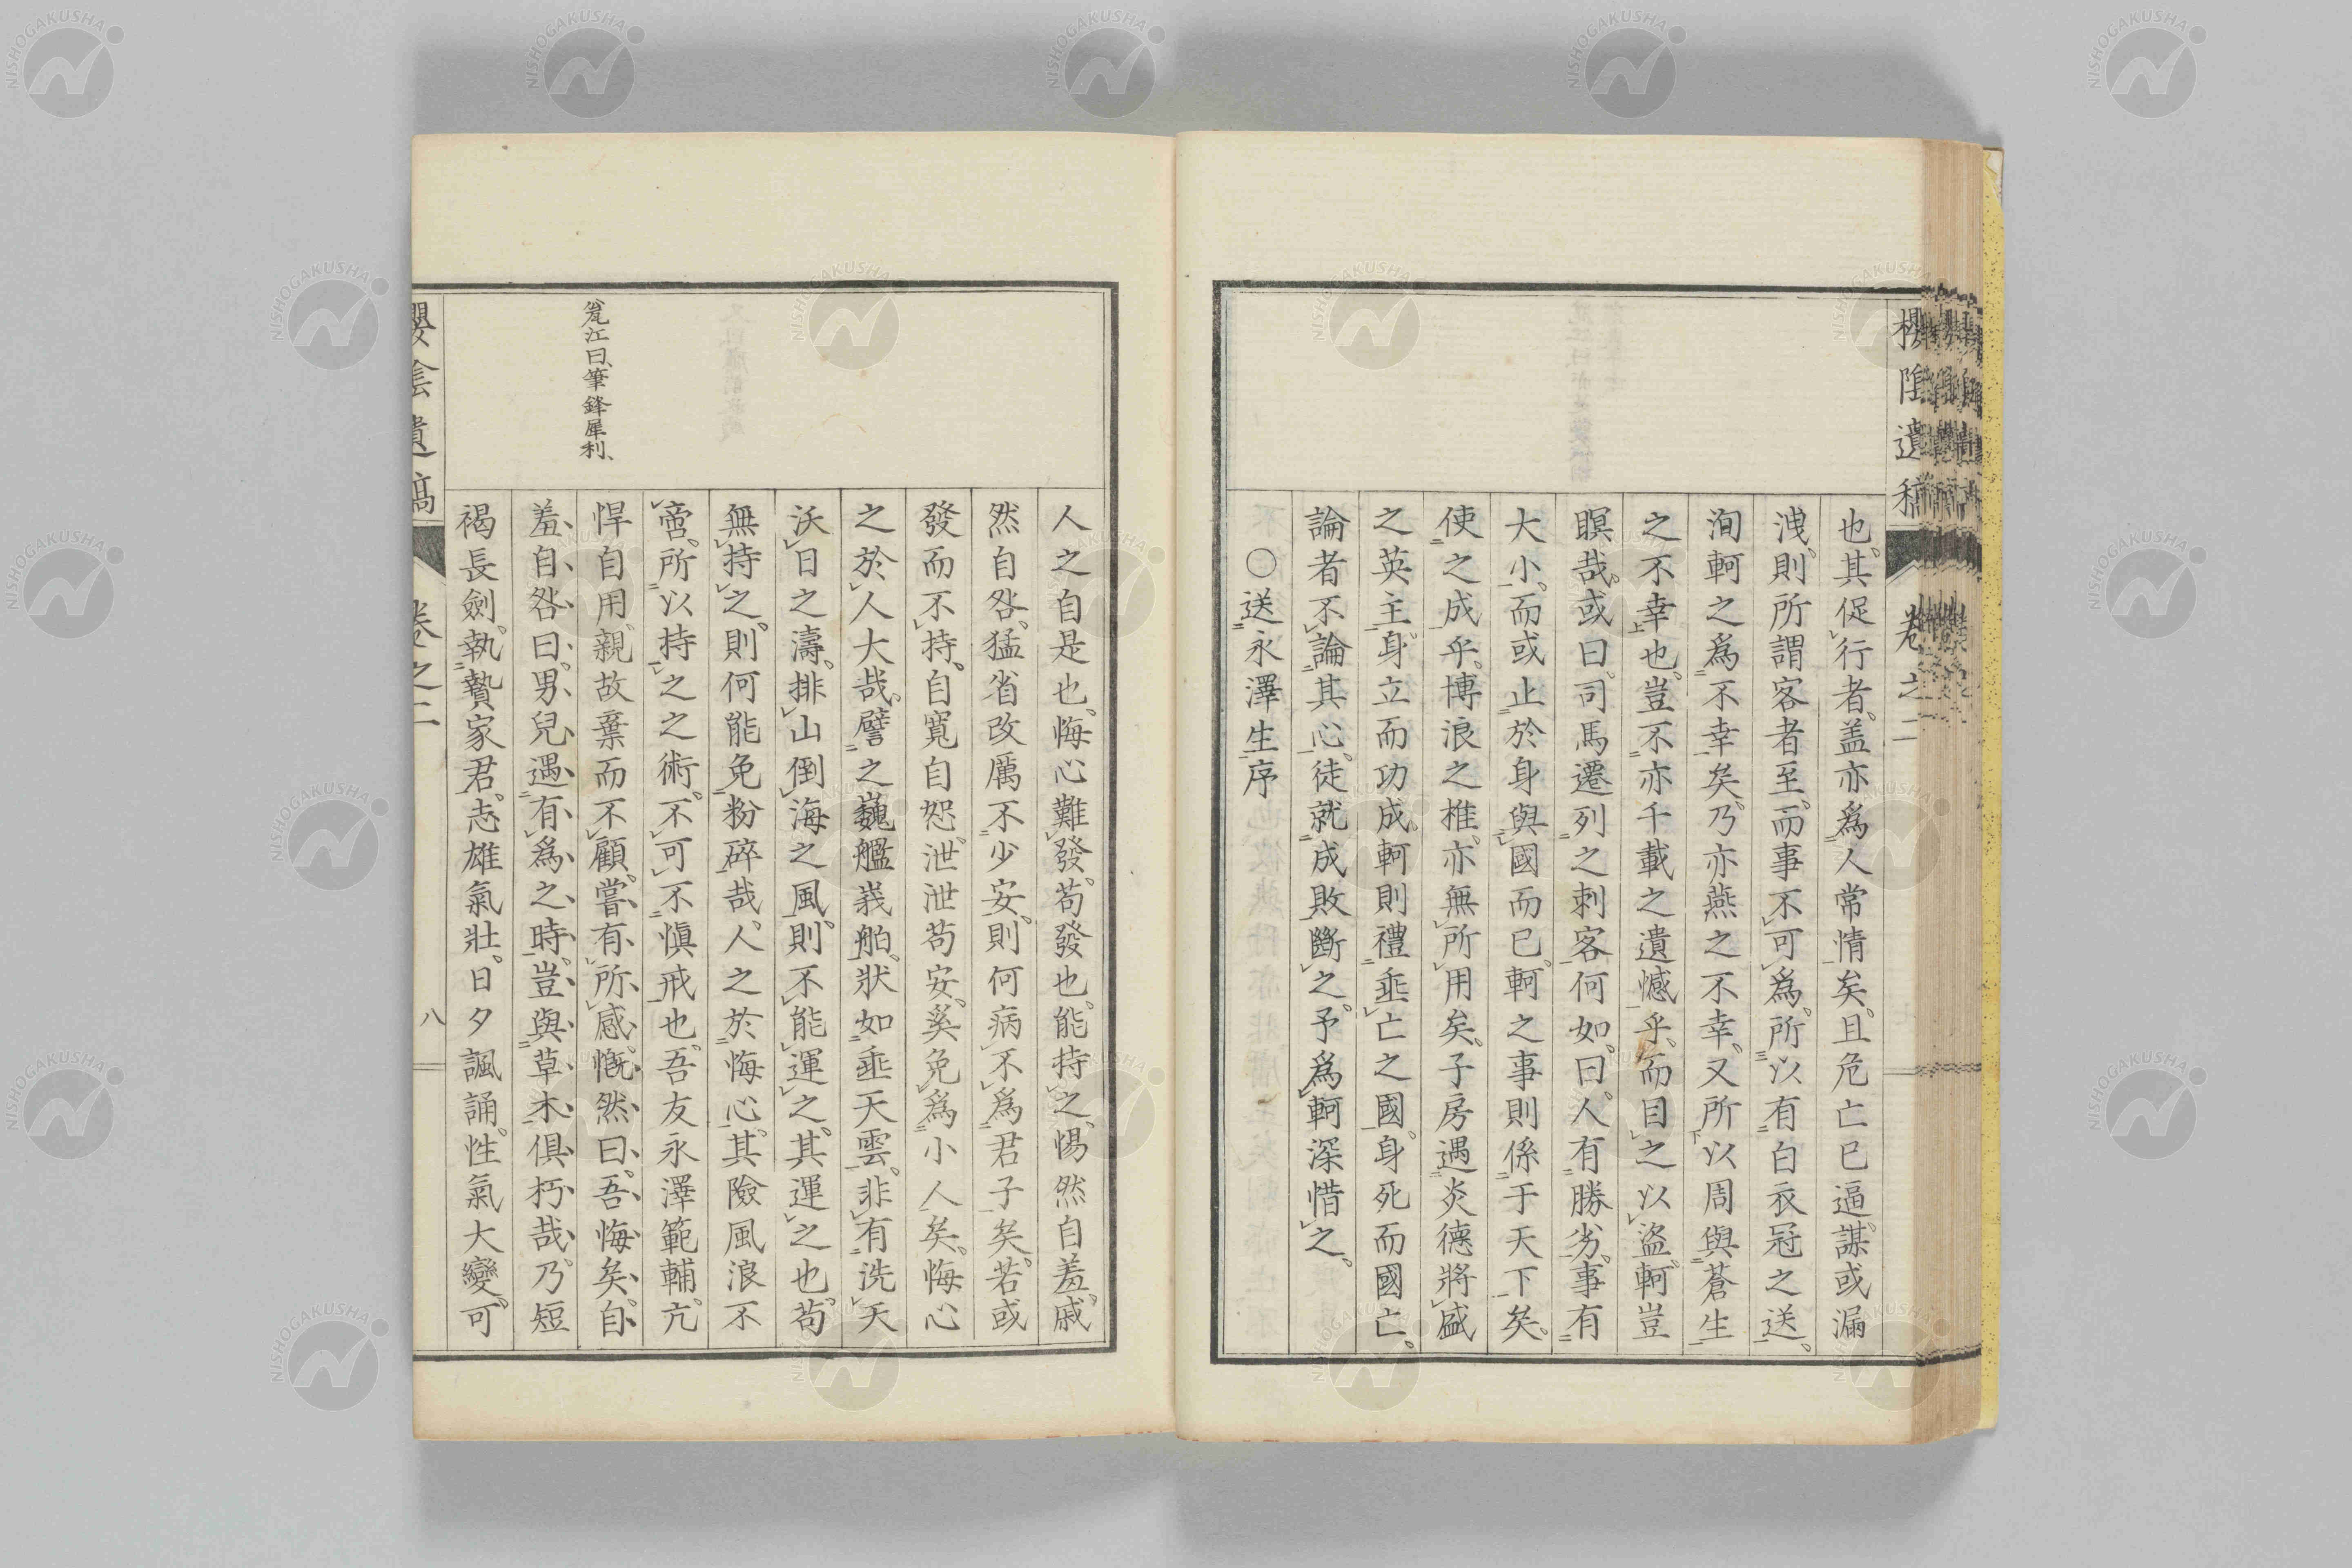 櫻陰遺稿
卷之二
也。其促行者。盖亦爲人常情矣。且危亡已逼。謀或漏
洩。則所謂客者至。而事不可爲。所以有白衣冠之送。
洵軻之爲不幸矣。乃亦燕之不幸。又所以周與蒼生
之不幸也。豈不亦千載之遺憾乎。而目之以盜。軻豈
瞑哉。或曰。司馬遷列之刺客何如。曰。人有勝劣。事有
大小。而或止於身與國而已。軻之事則係于天下矣。
使之成乎。博浪之椎。亦無所用矣。子房遇炎德將盛
之英主。身立而功成。軻則禮垂亡之國。身死而國亡。
論者不論其心。徒就成敗斷之。予爲軻深惜之。
○送永澤生序
人之自是也。悔心難發。苟發也。能持之。惕然自羞。戚
然自咎。猛省改厲不少安。則何病不爲君子矣。若或
發而不持。自寬自恕。泄泄苟安。奚免爲小人矣。悔心
之於人大哉。譬之巍艦峩舶。狀如垂天雲。非有洗天
沃日之濤。排山倒海之風。則不能運之。其運之也。苟
無持之。則何能免粉碎哉。人之於悔心。其險風浪不
啻。所以持之之術。不可不愼戒也。吾友永澤範輔。亢
悍自用。親故棄而不顧。嘗有所感。慨然曰。吾悔矣。自
羞自咎曰。男兒遇有爲之時。豈與草木俱朽哉。乃短
褐長劍。執贄家君。志雄氣壯。日夕諷誦。性氣大變。可
兊江曰、筆鋒犀利、
櫻陰遺稿
卷之二
八
NISHOGAKUSHA